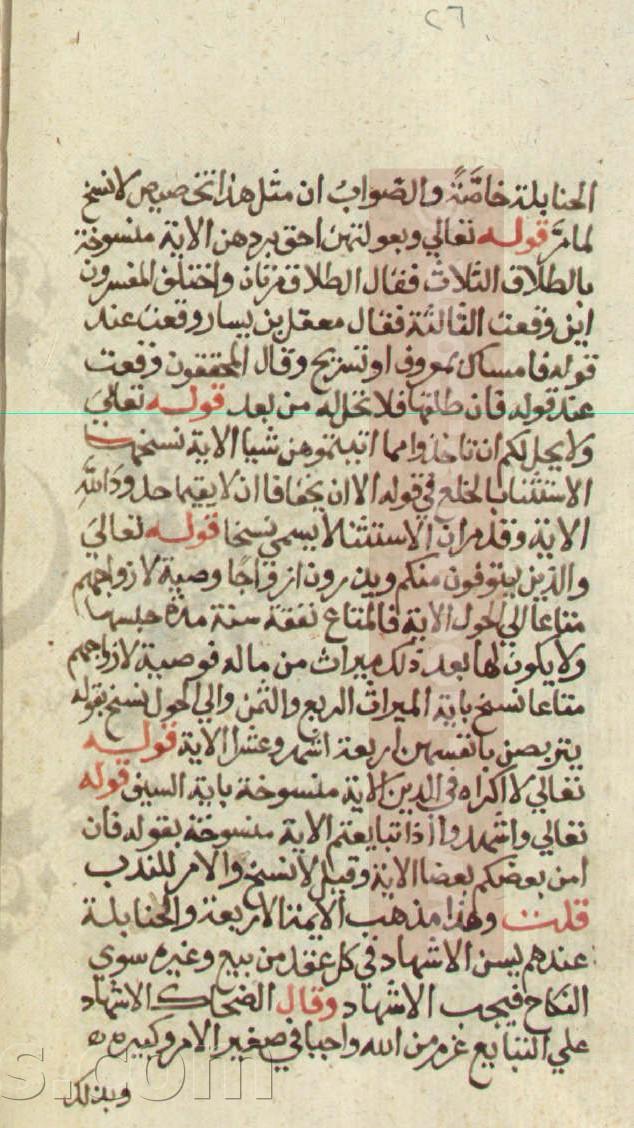 ٢٦
الحنابلة خاصَّةً والصَّوابُ ان مثل هذا تخصيص لا نسخ
لما مرَّ قوله تعالي وبعولتهن احق بردهن الاية منسوخة
بالطلاق الثلاث فقال الطلاق مرتان واختلف المفسرون
اين وقعت الثالثة فقال معقل بن يسار وقعت عند
قوله فامساك بمعروف او تسريح وقال المحققون وقعت
عند قوله فان طلقها فلا تحل له من بعد قوله تعالي
ولا يحل لكم ان تاخذوا مما اتيتموهن شيا الاية نسخها
الاستثنا بالخلع في قوله الا ان يخافا ان لا يقيما حدودَ اللهِ
الاية وقد مر ان الاستثنا لا يسمي نسخا قوله تعالي
والذين يتوفون منكم ويذرون ازواجًا وصية لازواجهم
متاعا الي الحول الاية فالمتاع نفقة سنة مدة حبسها
ولا يكون لها بعد ذلك ميراث من ماله فوصية لازواجهم
متاعا نسخ باية الميراث الربع والثمن والي الحول نسخ بقوله
يتربصن بانفسهن اربعة اشهر وعشرا الاية قوله
تعالي لا اكراه في الدين الاية منسوخة باية السيف قوله
تعالي واشهدوا اذا تبايعتم الاية منسوخة بقوله فان
امن بعضكم بعضا الاية وقيل لا نسخ والامر للندب
قلت ولهذا مذهب الايمة الاربعة والحنابلة
عندهم يسن الاشهاد في كل عقد من بيع وغيره سوي
النكاح فيجب الاشهاد وقال الضحاك الاشهاد
علي التبايع عزم من الله واجبا في صغير الامر وكبيره
وبذلك
s.com